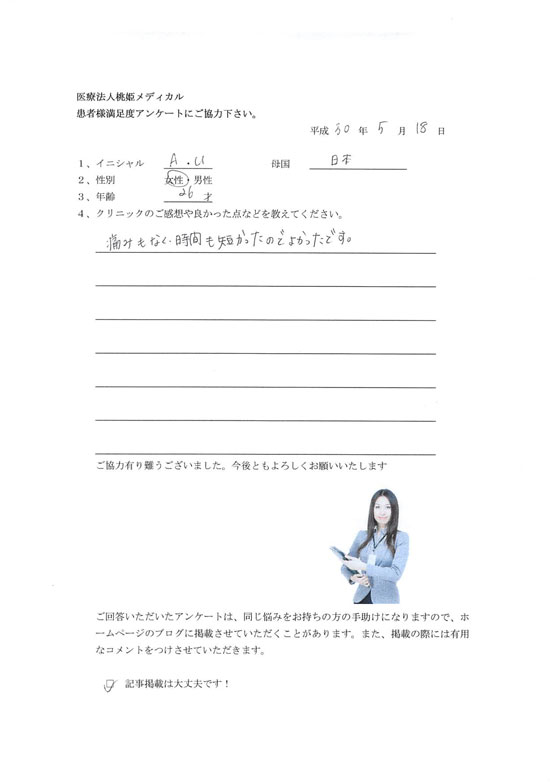 医療法人桃姫メディカル
患者様満足度アンケートにご協力下さい。
平成 30 年 5 月 18 日
1、イニシャル A.U 母国 日本
2、性別 女性・男性
3、年齢 26 才
4、クリニックのご感想や良かった点などを教えてください。
痛みもなく、時間も短かったのでよかったです。
ご協力有り難うございました。今後ともよろしくお願いいたします
ご回答いただいたアンケートは、同じ悩みをお持ちの方の手助けになりますので、ホ
ームページのブログに掲載させていただくことがあります。また、掲載の際には有用
なコメントをつけさせていただきます。
記事掲載は大丈夫です！